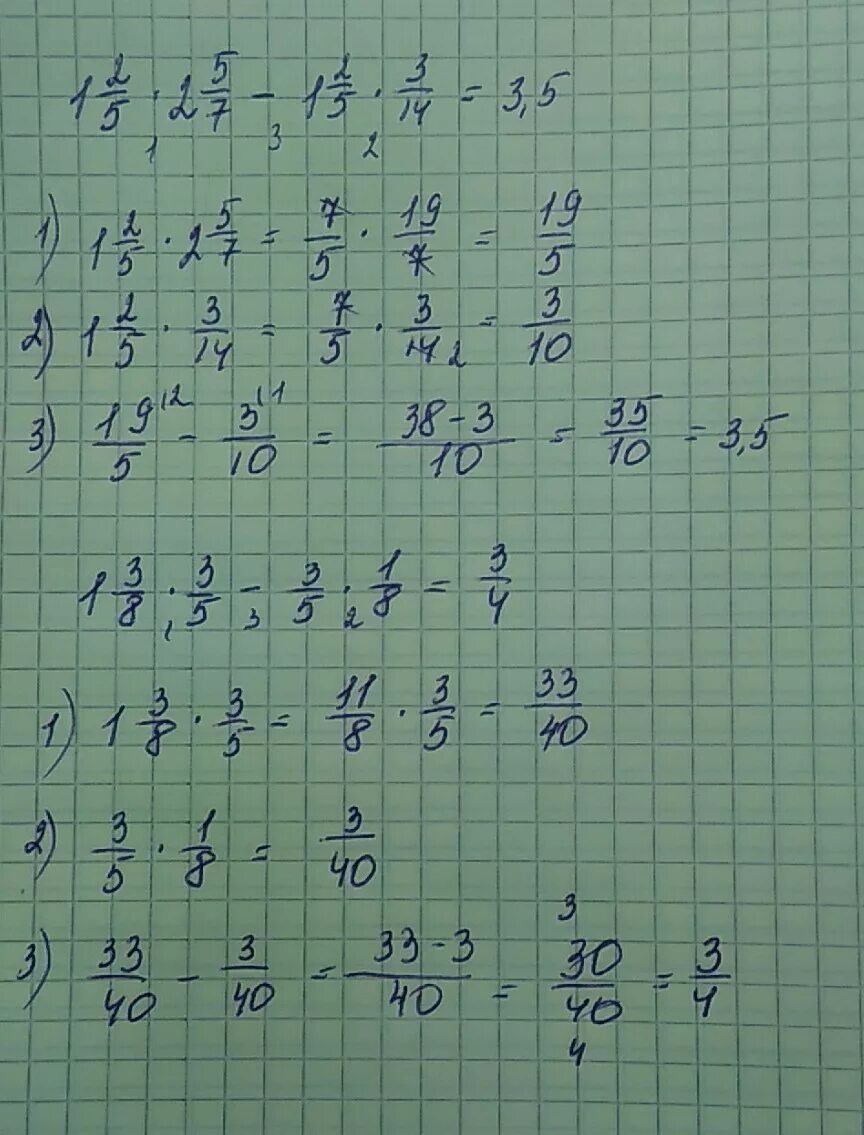 1 2/5 · 2 5/7 − 1 2/5 · 3/14 = 3,5
1 3 2
1) 1 2/5 · 2 5/7 = 7/5 · 19/7 = 19/5
2) 1 2/5 · 3/14 = 7/5 · 3/14 2 = 3/10
3) 19\2/5 − 3\1/10 = 38−3/10 = 35/10 = 3,5
1 3/8 · 3/5 − 3/5 · 1/8 = 3/4
1 3 2
1) 1 3/8 · 3/5 = 11/8 · 3/5 = 33/40
2) 3/5 · 1/8 = 3/40
3
3) 33/40 − 3/40 = 33−3/40 = 30/40 = 3/4
4